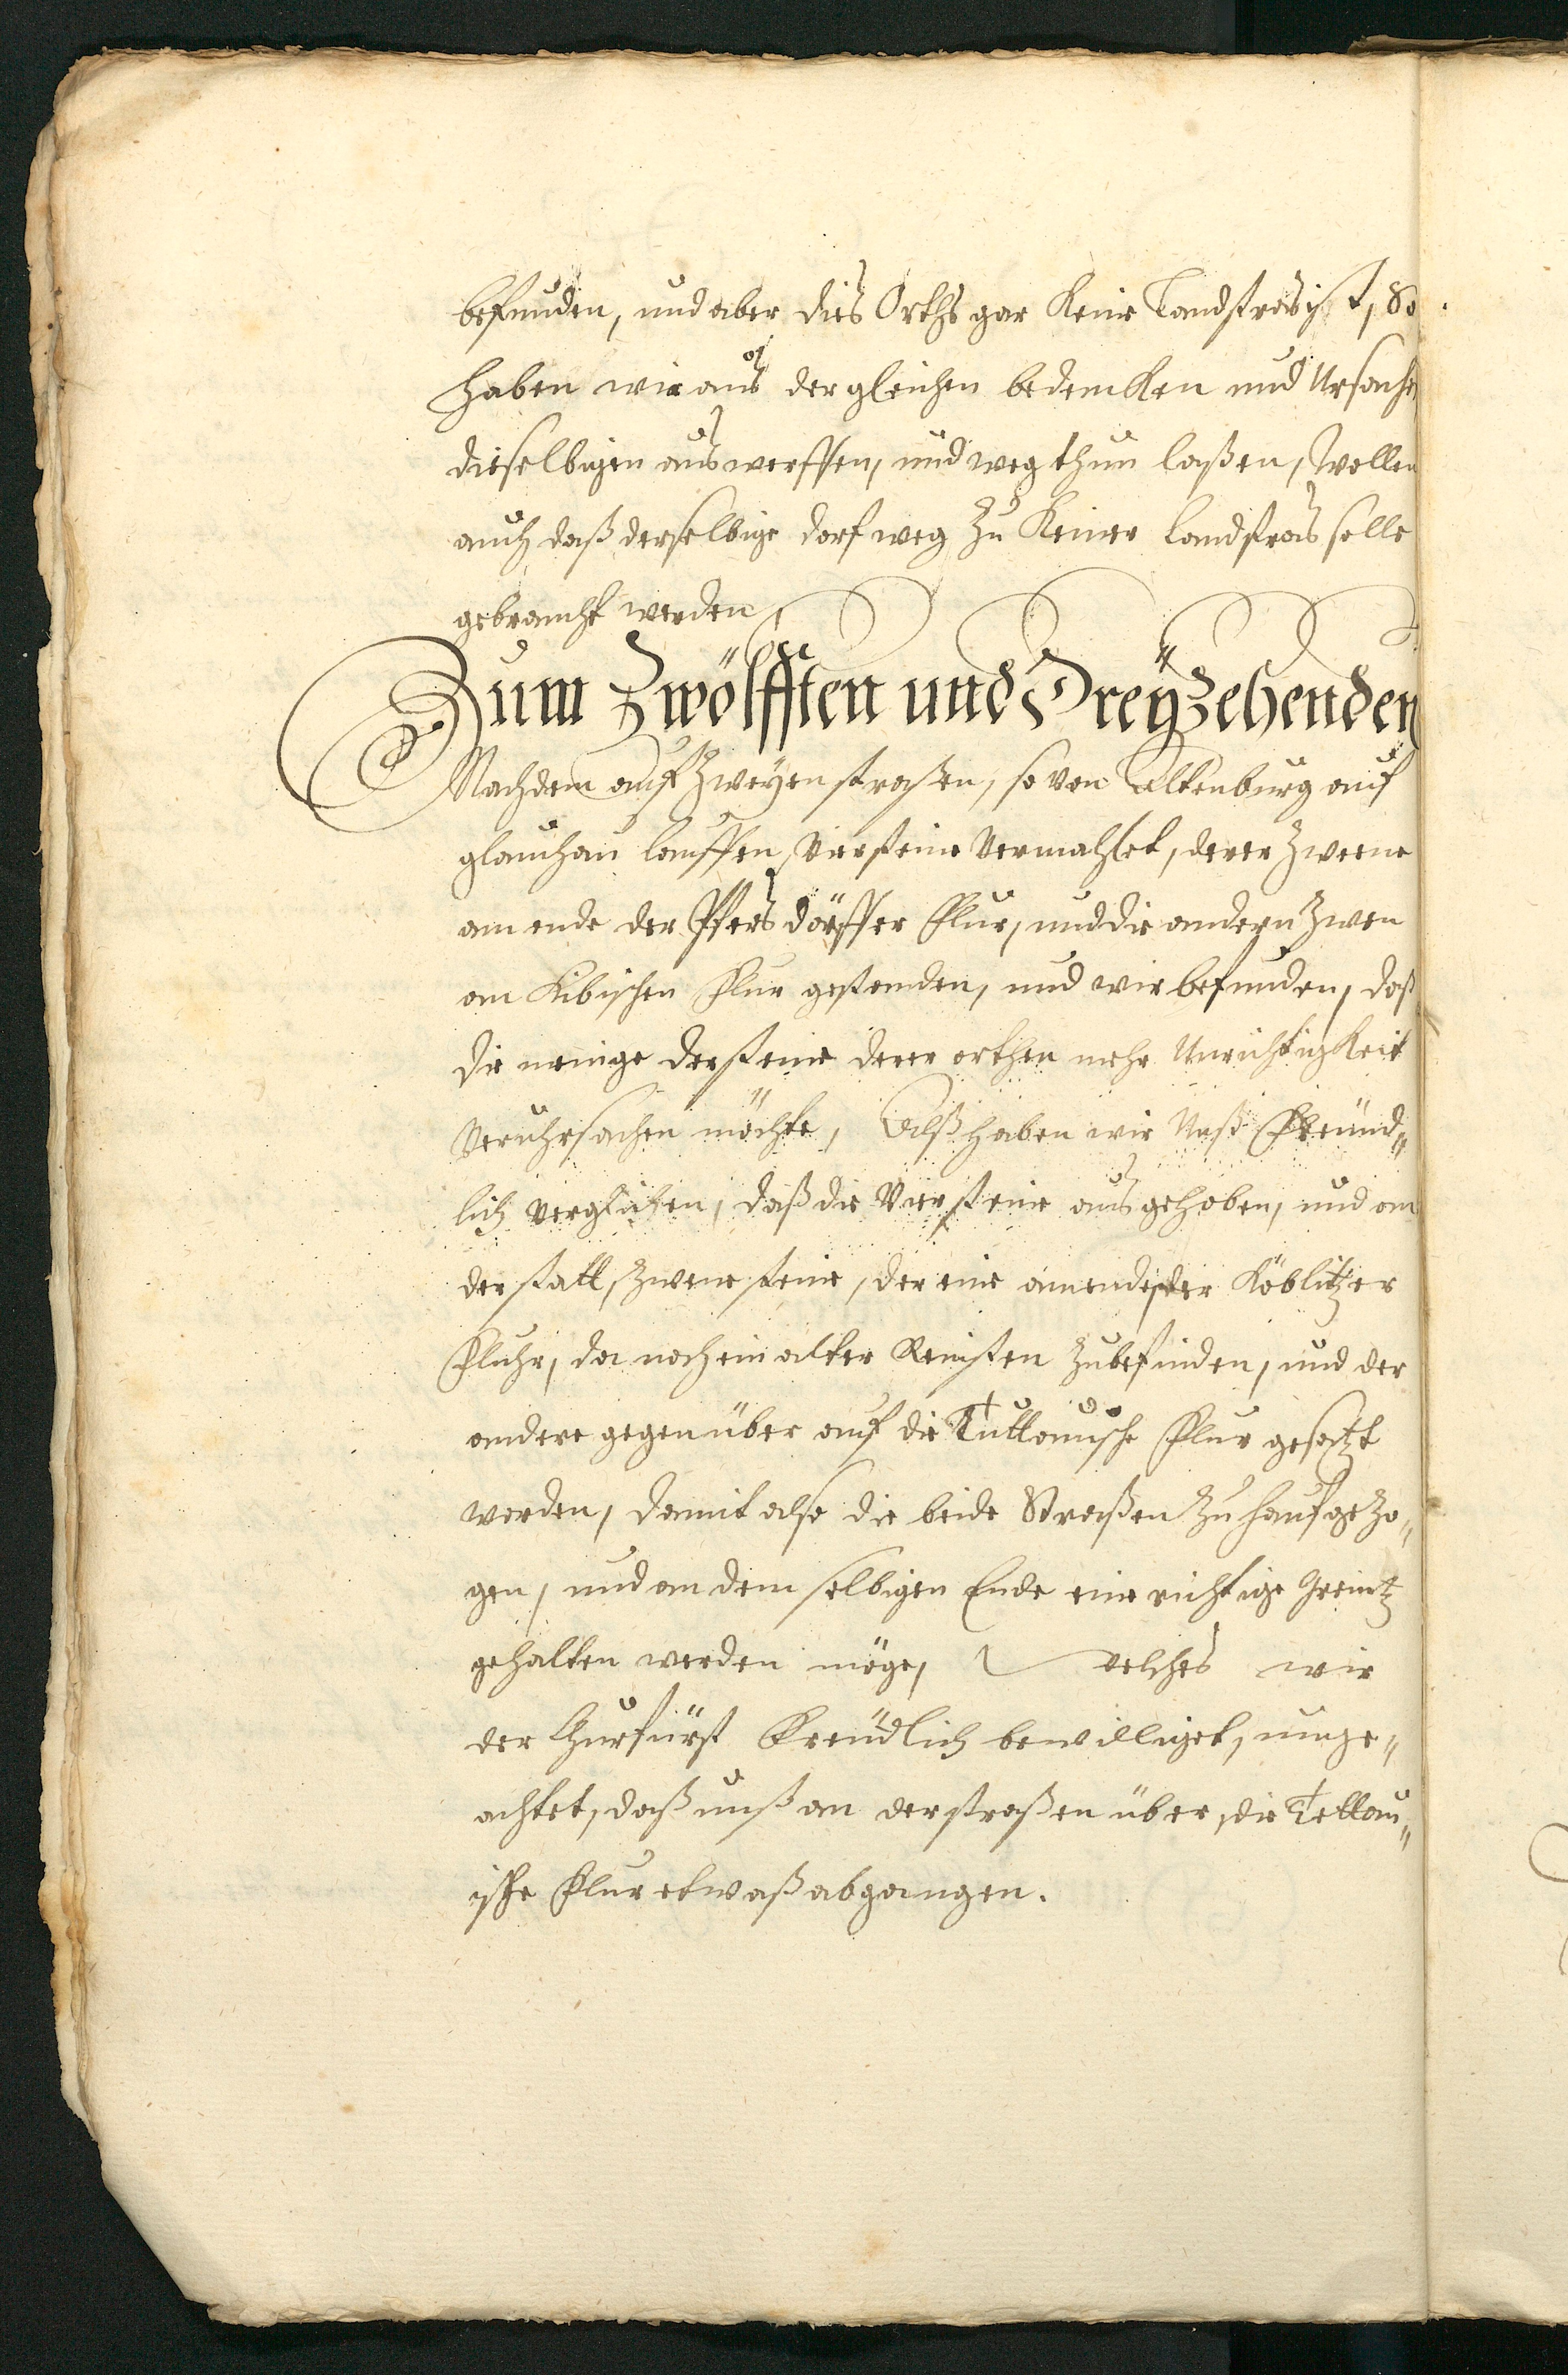 befunden, und aber dies Orths gar Keine Landstras ist, So
haben wir aus dergleichen bedencken und Ursachen
dieselbigen auswerffen, und wegthun laßen, Wollen
auch daß derselbige dorfweg zu Keiner landstras solle
gebraucht werden
Zum Zwölfften und Dreÿzehenden
Nachdem auf Zweÿen straßen, so von Altenburg auf
glauchau lauffen, Vier steine Vermahlet, derer Zweene
am ende der Pfersdörffer Flur, und die andern Zween
am Kibischen Flur gestanden, und wir befunden, daß
die menige der steine derer orthen mehr Unrichtigkeit
Veruhrsachen möchte, Alß haben wir Unß Freünd„
lich verglichen, daß die Vier steine ausgehoben, und an
der statt, Zwene steine, der eine am ende der Köblitzer
Fluhr, da noch ein alter Reinsten Zubefinden, und der
andere gegen über auf die Tuttauische Flur gesatzt
worden, damit also die beide Straßen Zuhauf geZo„
gen, und an dem selbigen Ende eine richtige Greintz
gehalten werden möge, Welches wir
der Churfürst Freündlich bewilliget, unge„
achtet, daß unß an der straßen über die Tettau„
ische Flur etwaß abgangen.